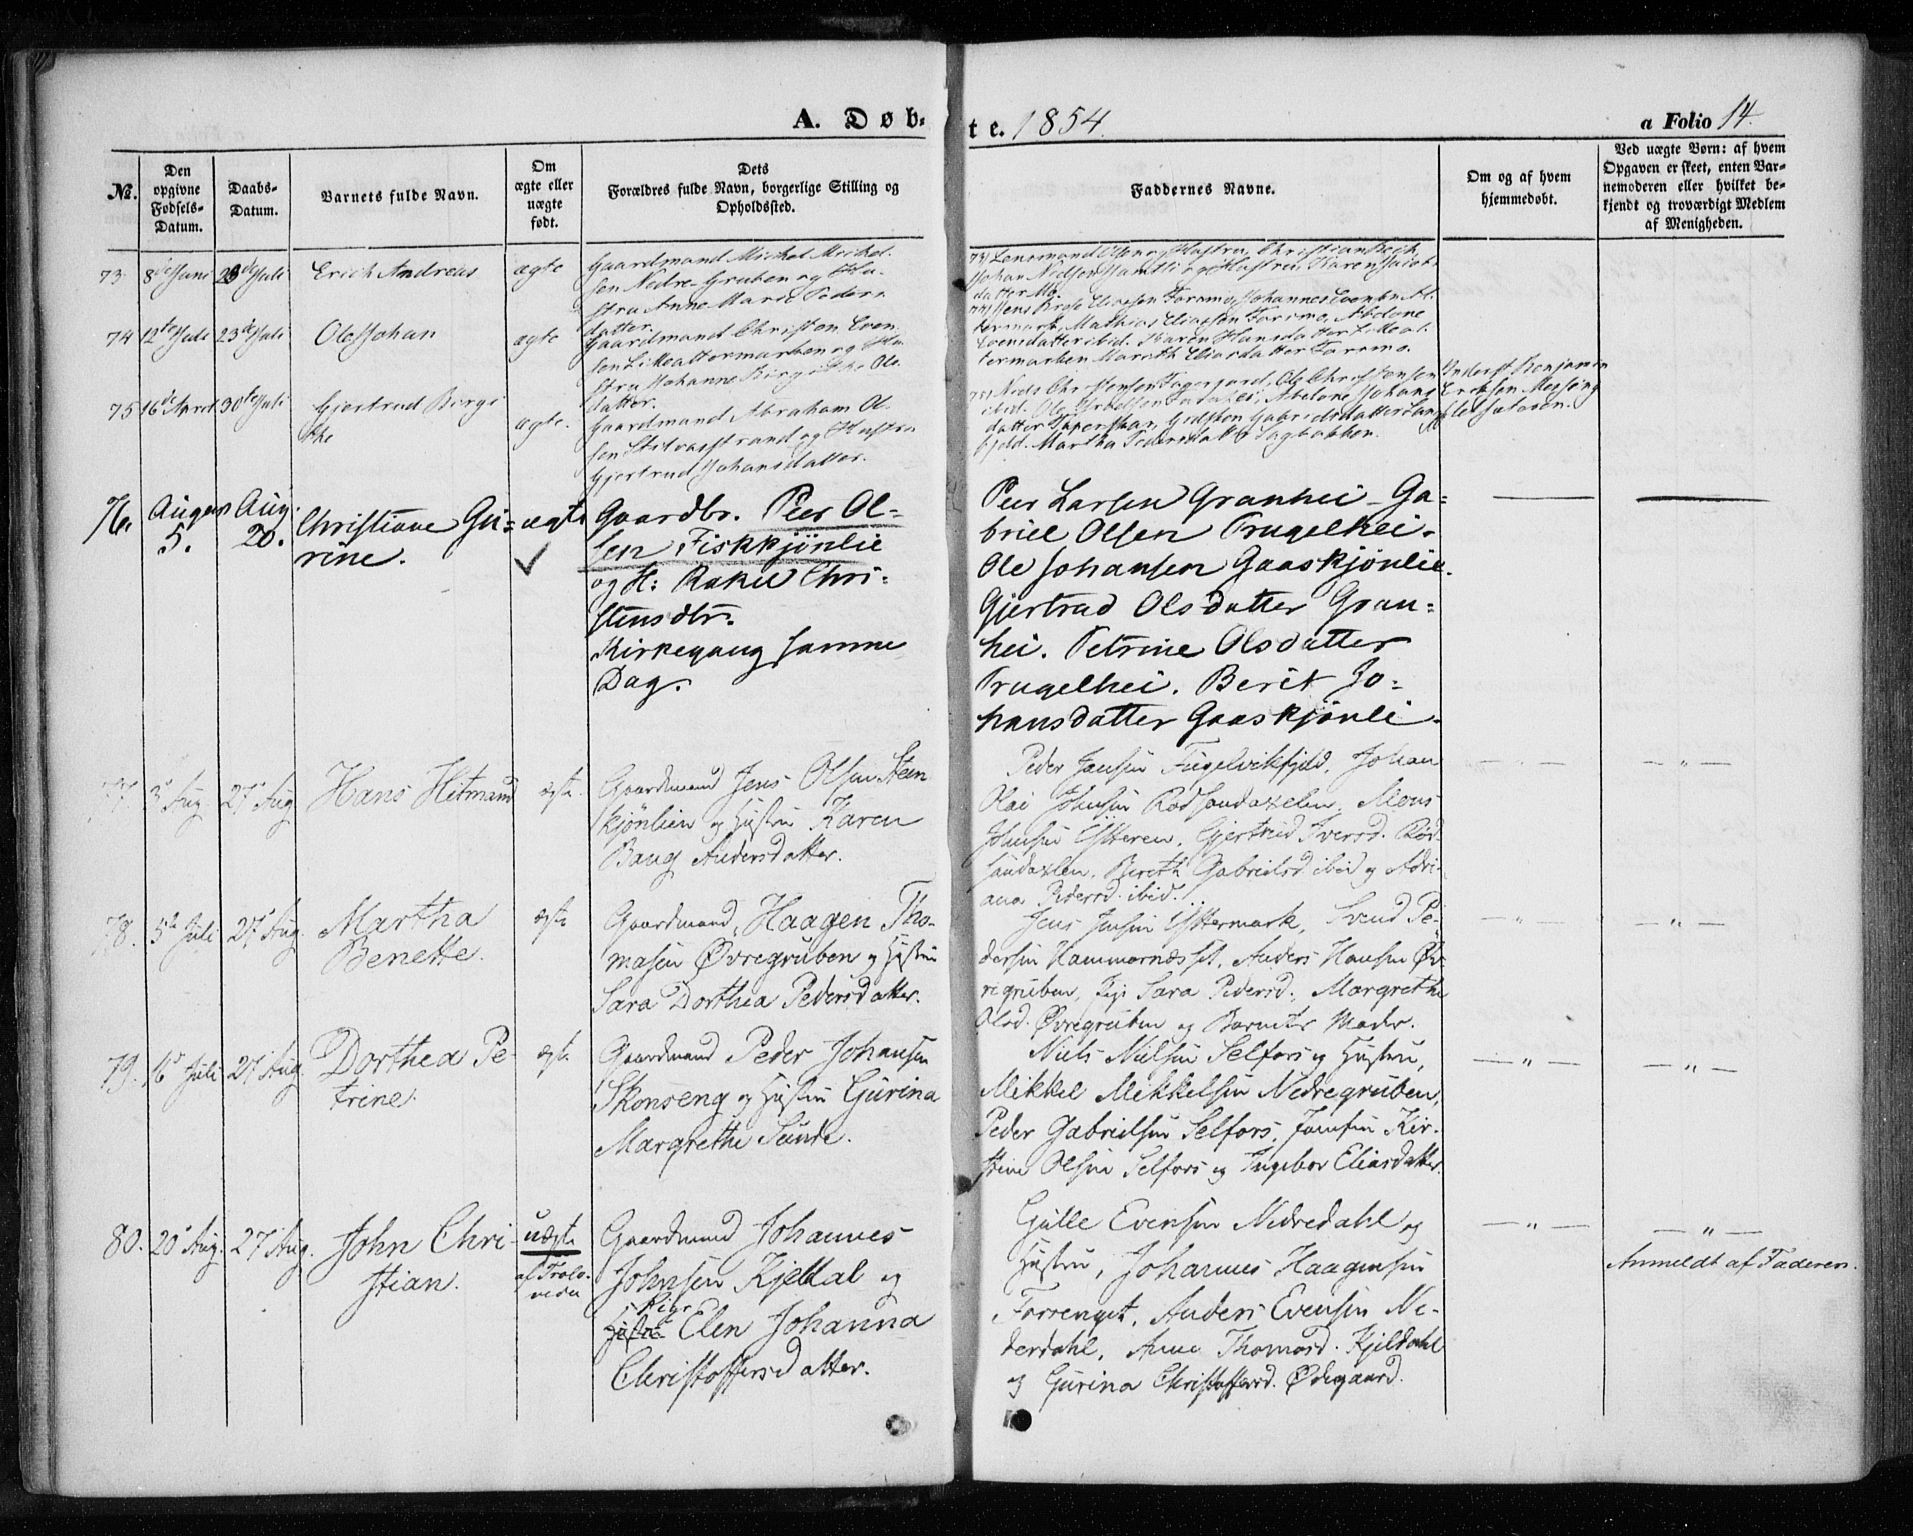 A. Døb-
te. 1854.
a Folio 14.
No.
Den opgivne Fødsels-Datum.
Daabs-Datum.
Barnets fulde Navn.
Om ægte eller uægte født.
Dets
Forældres fulde Navn, borgerlige Stilling og
Opholdssted.
Faddernes Navne.
Om og af hvem
hjemmedøbt.
Ved uægte Børn: af hvem
Opgaven er skeet, enten Bar-
nemoderen eller hvilket be-
kjendt og troværdigt Medlem
af Menigheden.
73 8de Juni 23de Juli Erich Andreas ægte
Gaardmand Michel Michel-
sen Nedre-Gruben og Hu-
stru Anne Marie Peders-
datter.
73) Lensmand Hustru, Christian
Johan Nilsen Hustru, Karen Jacobs-
datter Mo.
74 12te Juli 23de Juli Ole Johan ægte
Gaardmand Christen Even-
sen Lilleallermarken og Hu-
stru Johanne Birgithe Ols-
datter.
74) Jens Elias Eliassen Forsmo, Johannes Evensen Al-
termark, Mathias Eliassen Forsmo, Abelone
Evensdatter ibid. Karen Hansdatter Lilleal-
termarken Marith Eliasdatter Forsmo.
75 16de April 30te Juli Gjertrud Birgi-
the
ægte.
Gaardmand Abraham Ol-
sen Stilvasstrand og Hustru
Gjertrud Johansdatter.
75) Niels Christensen Ole Christensen
ibid. Ole Abelone Johans-
datter Gabrielsdatter Lang-
fjeld. Martha Pedersdatter Sagbakken.
Underst Benjamin
Eriksen Messing-
76. August 5. Aug. 20. Christiane Gu-
rine.
ægte
Gaardbr. Peer Ol-
sen Fiskkjönlie
og H: Rakel Chri-
stensdtr.
Kirkegang samme
Dag.
Peer Larsen Granhei - Ga-
briel Olsen Trugelhei.
Ole Johansen Gaaskjönlie.
Gjertrud Olsdatter Gran-
hei. Petrine Olsdatter
Trugelhei. Berit Jo-
hansdatter Gaaskjönli.
77. 3d Aug 27d Aug Hans Hitmand ægte.
Gaardmand Jens Olsen Steen
kjönlien og Hustru Karen
Baug Andersdatter.
Peder Jansen Fugelvikfjeld, Johan
Olai Johnsen Rödsandaxelen, Mons
Johnsen Ytteren, Gjertrud Iversd. Röd
sandaxlen, Bereth Gabrielsd ibid og Adri-
ana Pedersd. ibid.
78. 5te Juli 27d Aug. Martha
Benette.
ægte
Gaardmand, Haagen Tho-
masen Øvregruben og Hustru
Sara Dorthea Pedersdatter.
Jens Jensen Yttermark, Svend Pe-
dersen Hammernæsset, Anders Hansen Øv-
regruben, Pige Sara Pedersd., Margrethe
Olsd. Øvregruben og Barnets Moder.
79. 16d Juli 27d Aug Dorthea Pe-
trine.
ægte
Gaardmand Peder Johansen
Skonseng og Hustru Gurina
Margrethe Sunde.
Niels Nielsen Selfors og Hustru,
Mikkel Mikkelsen Nedregruben,
Peder Gabrielsen Selfors, Jomfru Kir-
stine Olsen Selfors og Ingebor Eliasdatter.
80. 20d Aug. 27d Aug. John Chri-
stian.
uægte
af Trolo-
vede
Gaardmand Johannes
Johnsen Kjeldal og
Pige
Hustru Elen Johanna
Christoffersdatter.
Gulle Evensen Nedredahl og
Hustru, Johannes Haagensen
Forrenget, Anders Evensen Ne-
derdahl, Anne Thomasd. Kjeldahl
og Gurina Christoffersd. Ødegaard.
Anmeldt af Faderen.